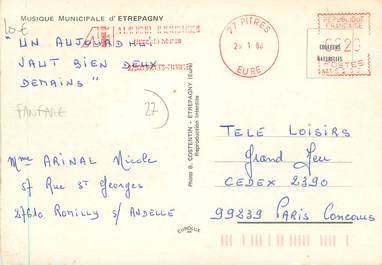 MUSIQUE MUNICIPALE d'ETREPAGNY
10€
"UN AUJOURD'HUI
VAUT BIEN DEUX
DEMAINS"
FANFARE
27
Mme ARINAL Nicole
57 Rue St Georges
27610 Romilly s/ ANDELLE
Photo B. COSTENTIN - ETREPAGNY (Eure)
Reproduction interdite
EUROLUX
27 PITRES
EURE
REPUBLIQUE
FRANCAISE
POSTES
COULEURS
NATURELLES
TELE LOISIRS
Grand Jeu
CEDEX 2390
99239 PARIS Concours